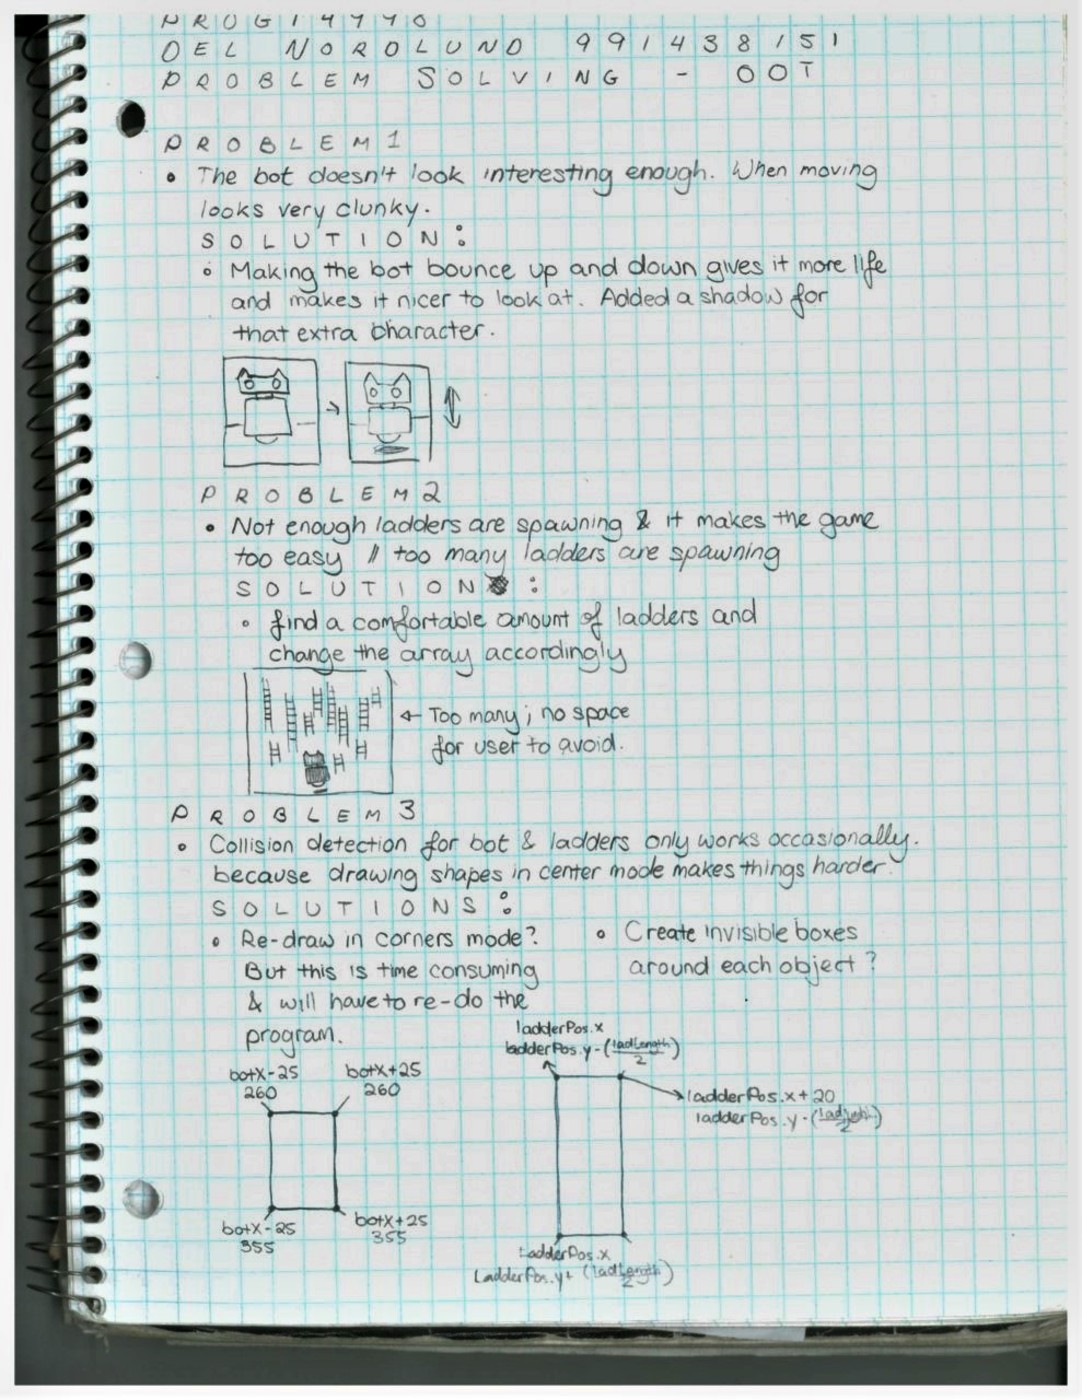 DEL NOROLUND 991438151
PROBLEM SOLVING - OOT
PROBLEM 1
• The bot doesn't look interesting enough. When moving
looks very clunky.
SOLUTION:
• Making the bot bounce up and down gives it more life
and makes it nicer to look at. Added a shadow for
that extra character.
PROBLEM 2
• Not enough ladders are spawning & it makes the game
too easy // too many ladders are spawning
SOLUTION :
• find a comfortable amount of ladders and
change the array accordingly
← Too many; no space
for user to avoid.
PROBLEM 3
• Collision detection for bot & ladders only works occasionally.
because drawing shapes in center mode makes things harder.
SOLUTIONS:
• Re-draw in corners mode?
But this is time consuming
& will have to re-do the
program.
• Create invisible boxes
around each object?
botX-25
260
botX+25
260
botX-25
355
botX+25
355
ladderPos.x
ladderPos.y-(ladLength/2)
ladderPos.x+20
ladderPos.y-(ladLength/2)
LadderPos.x
LadderPos.y+(ladLength/2)